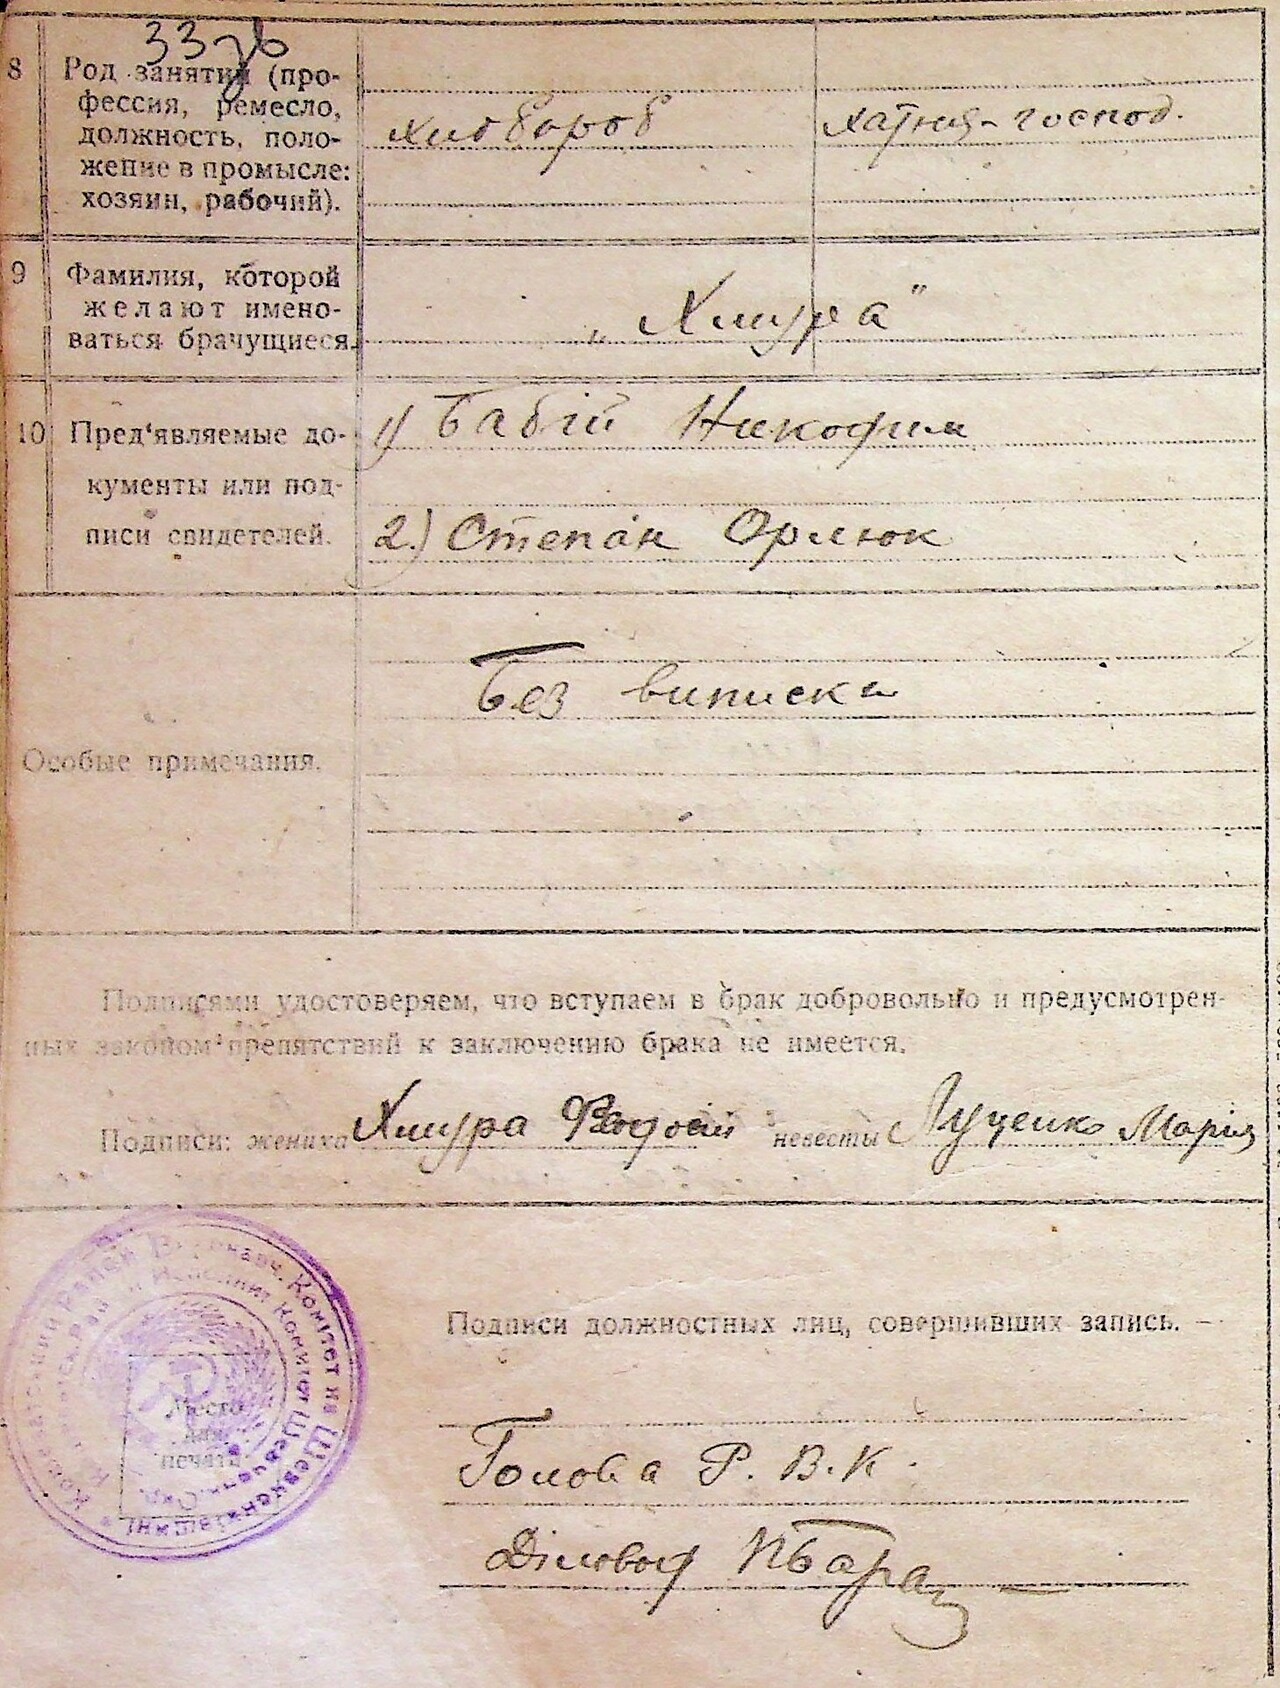 33зв
8 Род занятий (про-
фессия, ремесло,
должность, поло-
жение в промысле:
хозяин, рабочий).
хлібороб хатня-господ.
9 Фамилия, которой
желают имено-
ваться брачущиеся.
„Хмура"
10 Пред'являемые до-
кументы или под-
писи свидетелей.
1) Бабій Никофим
2.) Степан Орлюк
Особые примечания.
Без виписки
Подписями удостоверяем, что вступаем в брак добровольно и предусмотрен-
ных законом препятствий к заключению брака не имеется.
Подписи: жениха Хмура невесты Луценко Марія
Комітет на Шевченківщині
Исполнит Комитет Шевченк. Окр.
Место
для
печати
Подписи должностных лиц, совершивших запись.
Голова Р. В. К.
Діловод